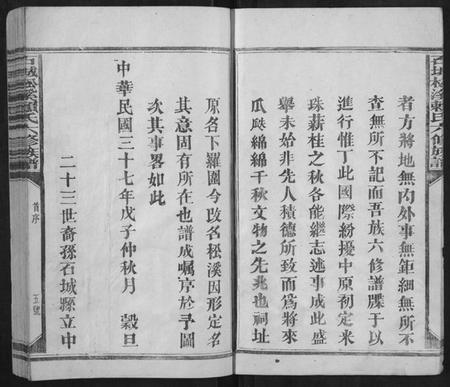 石城松溪賴氏六修族譜
者方將地無內外事無鉅細無所不
查無所不記而吾族六修譜牒于以
進行惟丁此國際紛擾中原刼定米
珠薪桂之秋各能繼志述事成此盛
舉未始非先人積德所致而爲將來
瓜瓞綿綿千秋文物之先兆也祠址
原名下羅圍今改名松溪因形定名
其意固有所在也譜成囑序於予圖
次其事畧如此
中華民國三十七年戊子仲秋月 穀旦
二十三世裔孫石城縣立中
首序
五號
石城松溪賴氏六修族譜